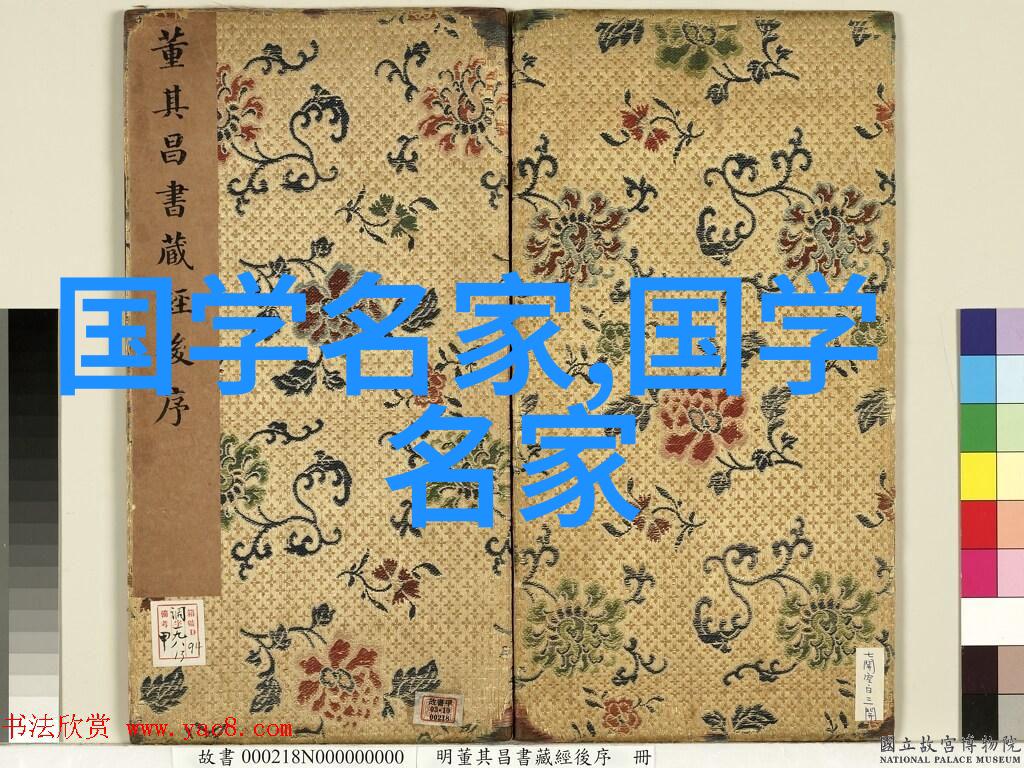 董其昌書藏經後序
国学名家,国学
名家
箱號D
備考
调字九八
甲 13
94
故書甲
03•10
00218
七開空白三開
书法欣赏 www.yac8.com
故書 000218N000000000
明董其昌書藏經後序 冊
國立故宮博物院
NATIONAL PALACE MUSEUM